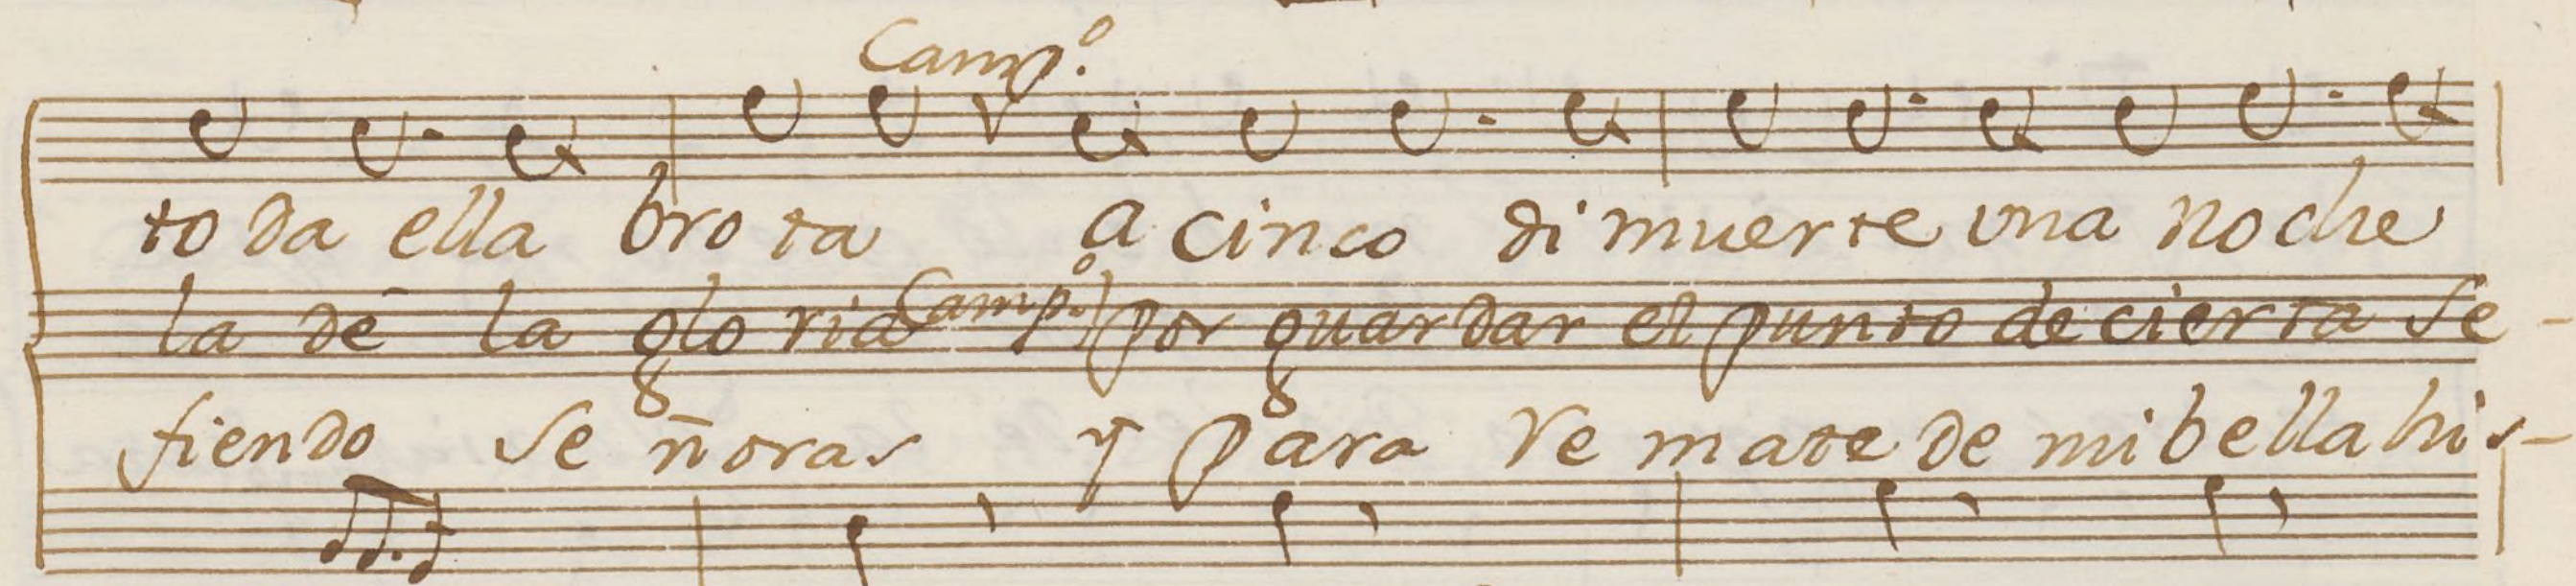 Camp.º
to da ella bro ta a cinco di muerte una noche
la de la glo ria Camp.º) por guardar el punto de cierta se-
fiendo se ñoras y para re mate de mi bella his-